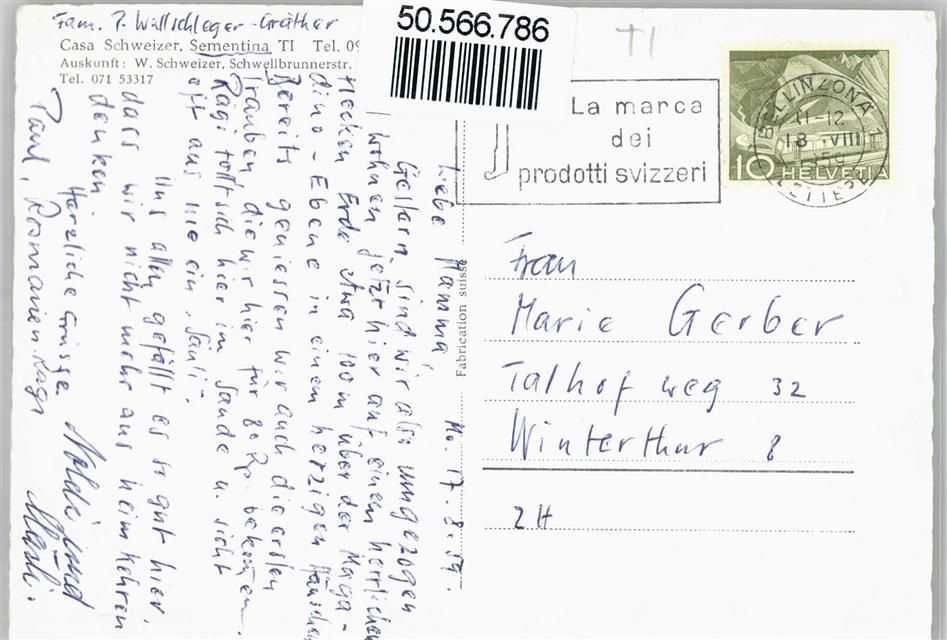 Fam. P. Wullschleger-Gräther
Casa Schweizer, Sementina TI Tel. 09
Auskunft: W. Schweizer, Schwellbrunnerstr.
Tel. 071 53317
50.566.786
TI
La marca
dei
prodotti svizzeri
BELLINZONA 1
11-12
18 VIII
1959
LETTERE
10 HELVETIA
Mo. 17.8.59.
Liebe Mamma!
Gestern sind wir also umgezogen
wohnen jetzt hier auf einem herrlichen
Flecken Erde etwa 100m über der Maga-
dino-Ebene in einem herzigen Häuschen
Bereits geniessen wir auch die ersten
Trauben, die wir hier für 80 Rp. bekommen.
Rägi tollt sich hier im Sande u. sieht
oft aus wie ein "Säuli".
Uns allen gefällt es so gut hier,
dass wir nicht mehr aus heimkehren
denken.
Herzliche Grüsse
Paul, Rosmarien. Rägi
und
Fabrication suisse
Frau
Marie Gerber
Talhofweg 32
Winterthur 8
ZH